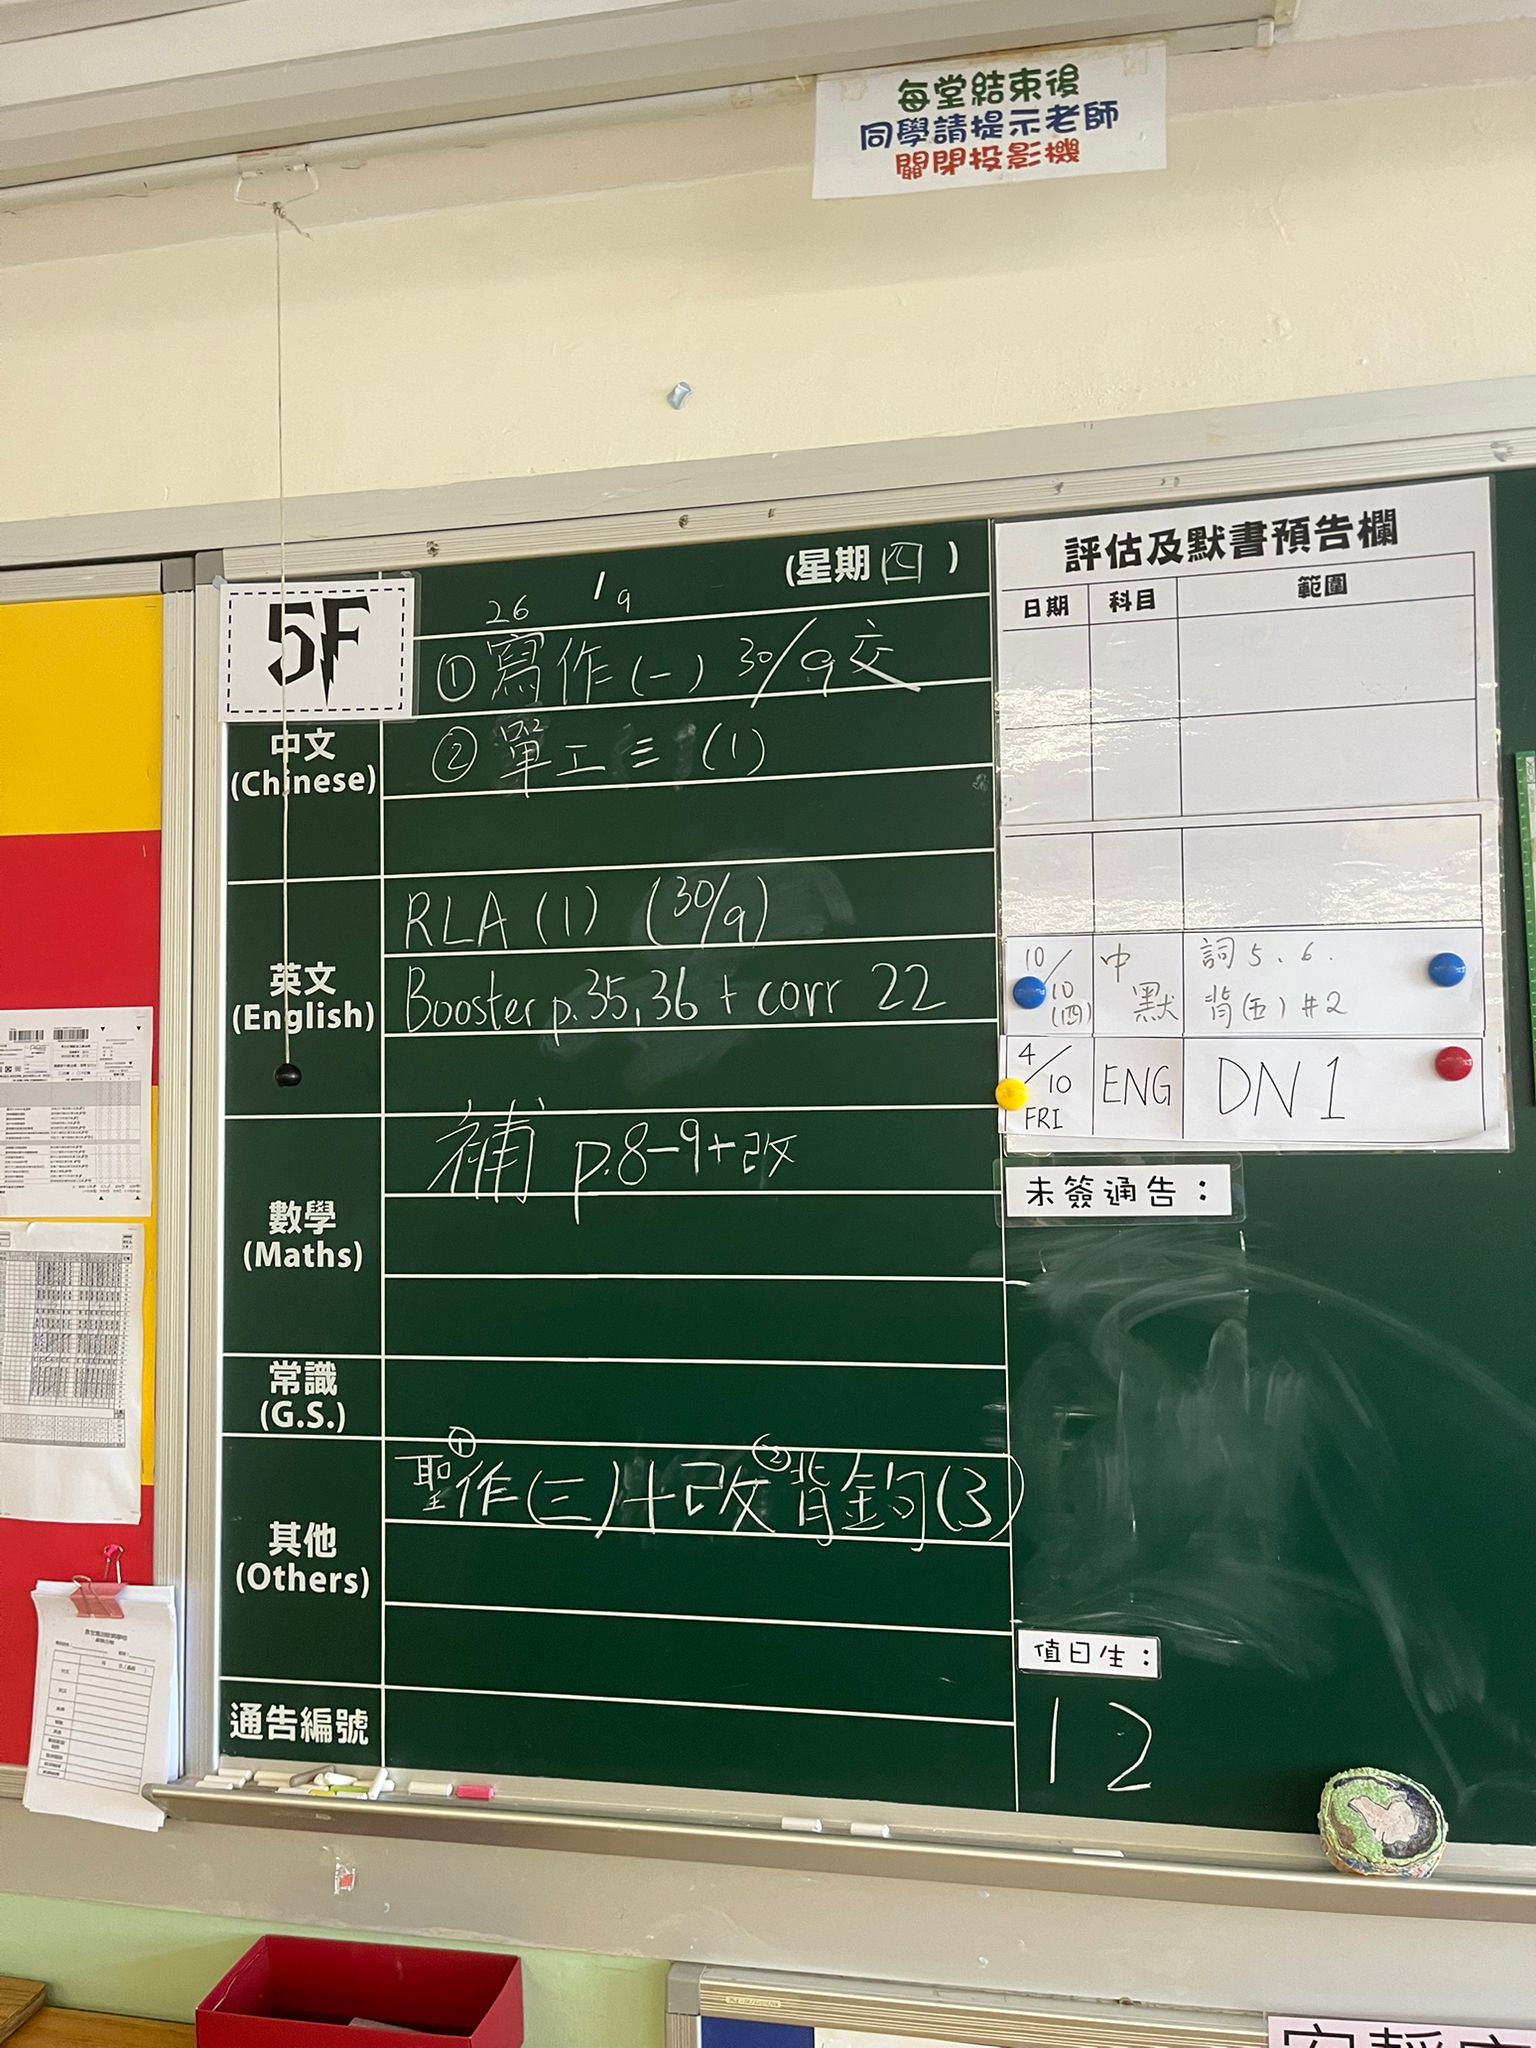 每堂結束後
同學請提示老師
關閉投影機
5F
26/9
(星期四)
中文
(Chinese)
①寫作(一) 30/9交
②單工三 (1)
英文
(English)
RLA (1) (30/9)
Booster p.35,36 + corr 22
數學
(Maths)
補 p.8-9+改
常識
(G.S.)
其他
(Others)
①聖作(三)+改 ②背鈎(3)
通告編號
評估及默書預告欄
日期 科目 範圍
10/10(四) 中默 詞5、6.
背(五)#2
4/10 FRI ENG DN 1
未簽通告：
值日生：
12